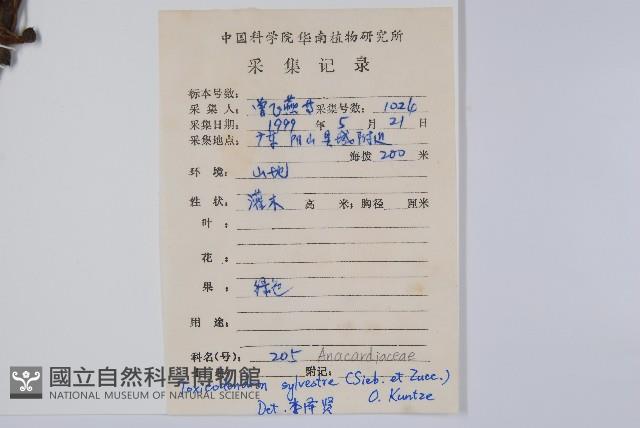 中国科学院华南植物研究所
采集记录
标本号数:
采集人: 曾飞燕等 采集号数: 1024
采集日期: 1999 年 5 月 21 日
采集地点: 广东 阳山 县城附近
海拨 200 米
环境: 山地
性状: 灌木 高 米; 胸径 厘米
叶:
花:
果: 绿色
用途:
科名(号): 205 Anacardiaceae
附记:
Toxicodendron sylvestre (Sieb. et Zucc.)
O. Kuntze
Det. 李泽贤
國立自然科學博物館
NATIONAL MUSEUM OF NATURAL SCIENCE